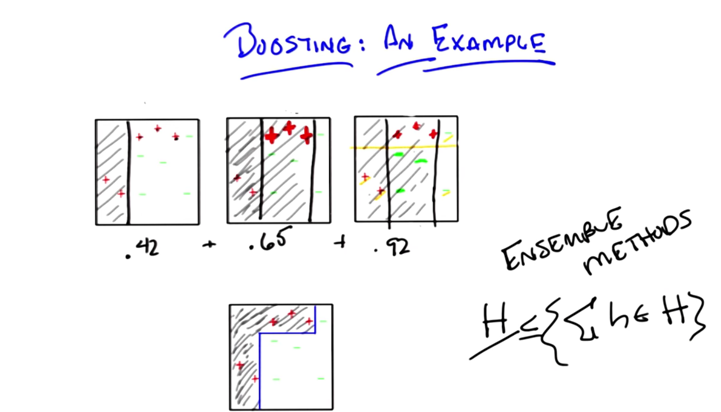 BOOSTING: AN EXAMPLE
.42 + .65 + .92
ENSEMBLE
METHODS
H ⊆ { Σ h ∈ H }